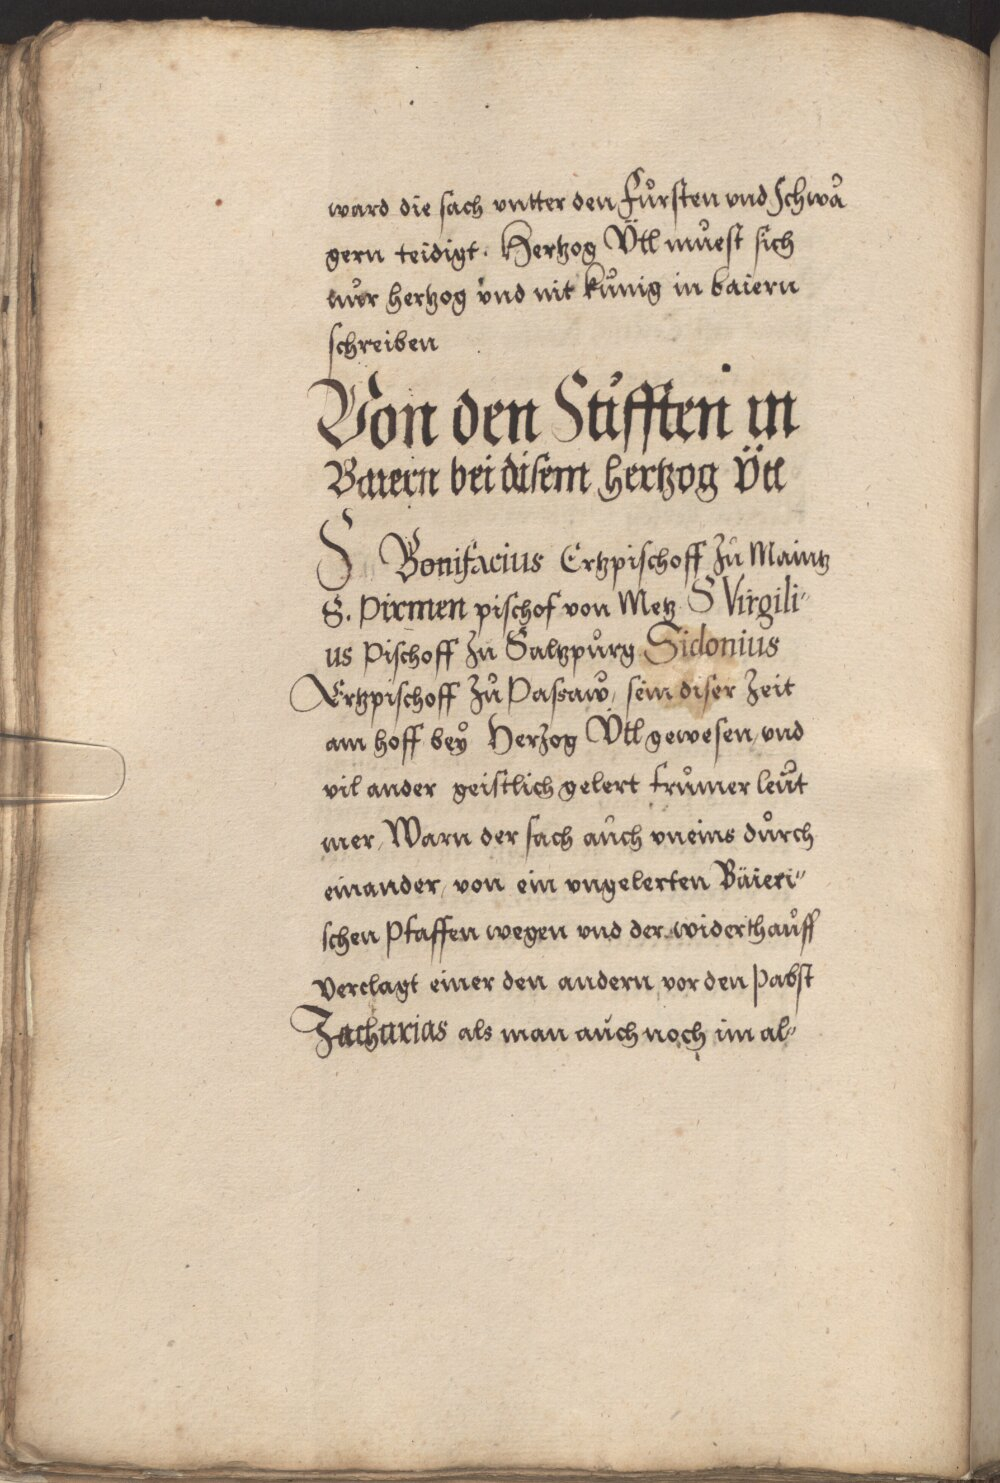 ward die sach vntter den Fůrsten vnd Schwå
gern teidigt. Hertzog Ŭtl můest sich
nůr hertzog vnd nit kůnig in baiern
schreiben
Von den Stifften in
Baiern bei disem hertzog Ŭtl
S Bonifacius Ertzpischoff zů Maintz
S. Pirmen pischof von Metz S Virgili⸗
us Pischoff zů Saltzpůrg Sidonius
Ertzpischoff zů Passaw, sein diser zeit
am hoff beÿ Herzog Ŭtl gewesen, vnd
vil ander geistlich gelert frůmer leůt
mer, Warn der sach aůch vneins důrch
einander, von ein vngelerten Bäieri⸗
schen Pfaffen wegen vnd der widerthaůff
verclagt einer den andern vor den Pabst
Zacharias als man aůch noch im al⸗